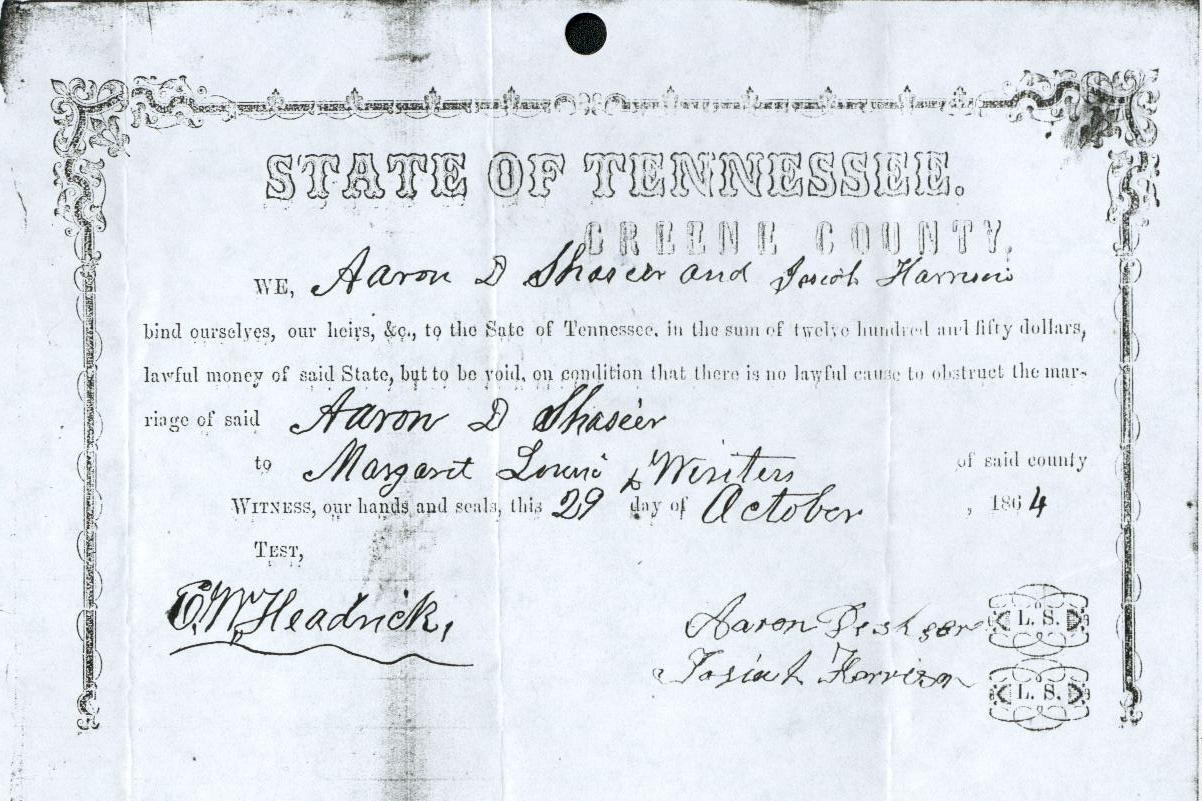 STATE OF TENNESSEE.
GREENE COUNTY.
WE, Aaron D Shaseer and Josiah Harrison
bind ourselves, our heirs, &c., to the Sate of Tennessee, in the sum of twelve hundred and fifty dollars,
lawful money of said State, but to be void, on condition that there is no lawful cause to obstruct the mar-
riage of said Aaron D Shaseer
to Margaret Winters of said county
WITNESS, our hands and seals, this 29 day of October, 1864
TEST,
E. W. Headrick,
Aaron L. S.
Josiah Harrison L. S.